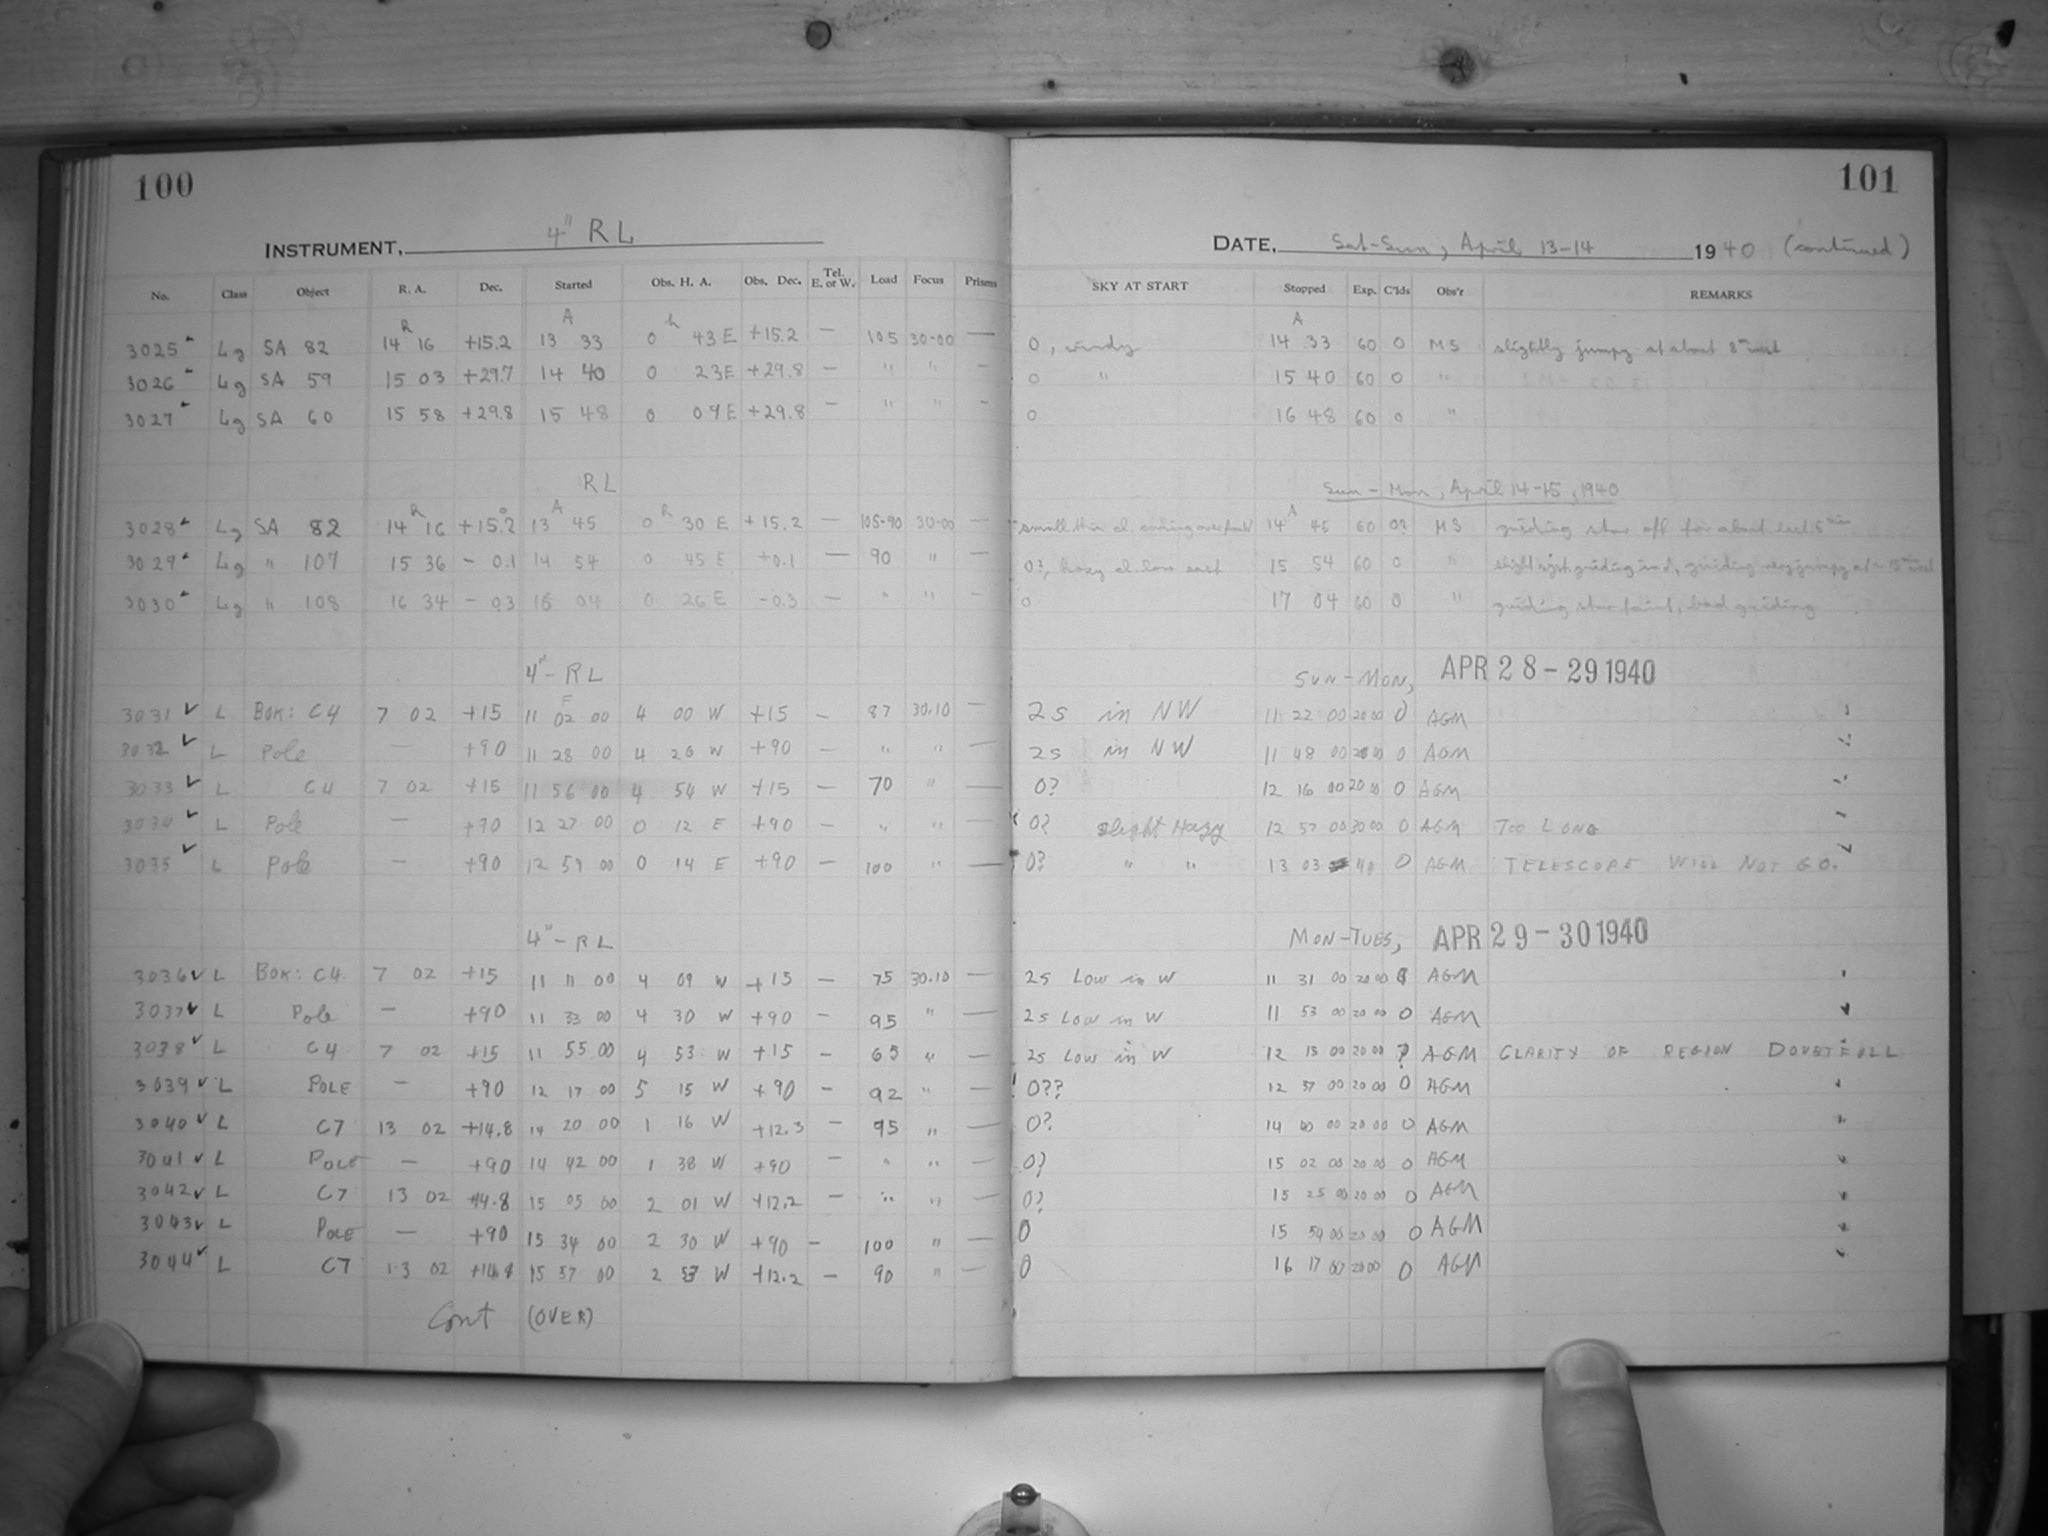 100
INSTRUMENT, 4" RL
No. Class Object R. A. Dec. Started Obs. H. A. Obs. Dec. Tel. E. or W. Load Focus Prisms
3025 Lg SA 82 14 R 16 +15.2 13 A 33 0 h 43 E +15.2 — 105 30-00 —
3026 Lg SA 59 15 03 +29.7 14 40 0 23 E +29.8 — " " –
3027 Lg SA 60 15 58 +29.8 15 48 0 09 E +29.8 — " " –
RL
3028 Lg SA 82 14 R 16 +15.2 13 A 45 0 R 30 E +15.2 — 105-90 30-00 —
3029 Lg " 107 15 36 - 0.1 14 54 0 45 E +0.1 — 90 " —
3030 Lg " 108 16 34 - 0.3 16 04 0 26 E -0.3 — " " —
4" - RL
3031 ✓ L BOK: C4 7 02 +15 11 02 00 4 00 W +15 — 87 30.10 —
3032 ✓ L Pole — +90 11 28 00 4 26 W +90 — " " —
3033 ✓ L C4 7 02 +15 11 56 00 4 54 W +15 — 70 " —
3034 ✓ L Pole — +90 12 27 00 0 12 E +90 — " " —
3035 ✓ L Pole — +90 12 59 00 0 14 E +90 — 100 " —
4" - RL
3036 ✓ L BOK: C4. 7 02 +15 11 11 00 4 09 W +15 — 75 30.10 —
3037 ✓ L Pole — +90 11 33 00 4 30 W +90 — 95 " —
3038 ✓ L C4 7 02 +15 11 55 00 4 53 W +15 — 65 " —
3039 ✓ L POLE — +90 12 17 00 5 15 W +90 — 92 " —
3040 ✓ L C7 13 02 +14.8 14 20 00 1 16 W +12.3 — 95 " —
3041 ✓ L POLE — +90 14 42 00 1 38 W +90 — " " —
3042 ✓ L C7 13 02 +14.8 15 05 00 2 01 W +12.2 — " " —
3043 ✓ L POLE — +90 15 34 00 2 30 W +90 — 100 " —
3044 ✓ L C7 13 02 +14.8 15 57 00 2 53 W +12.2 — 90 " —
Cont (OVER)
101
DATE, Sat-Sun, April 13-14 1940 (continued)
SKY AT START Stopped Exp. C'lds Obs'r REMARKS
0, windy 14 A 33 60 0 MS slightly jumpy at about 8
0 " 15 40 60 0 "
0 16 48 60 0 "
Sun - Mon, April 14-15, 1940
small thin cl. coming over 14 A 45 60 0? MS guiding star off for about last 5 min
0?, hazy cl. low east 15 54 60 0 " slight guiding very jumpy at
0 17 04 60 0 " guiding star faint, bad guiding
SUN-MON, APR 28-29 1940
2S in NW 11 22 00 20 00 0 AGM
2S in NW 11 48 00 20 00 0 AGM
0? 12 16 00 20 00 0 AGM
0? slight Hazy 12 57 00 30 00 0 AGM TOO LONG
0? " " 13 03 40 0 AGM TELESCOPE WILL NOT GO.
MON-TUES, APR 29-30 1940
2S LOW in W 11 31 00 20 00 AGM
2S LOW in W 11 53 00 20 00 0 AGM
2S LOW in W 12 15 00 20 00 ? AGM CLARITY OF REGION DOUBTFULL
0?? 12 37 00 20 00 0 AGM
0? 14 40 00 20 00 0 AGM
0? 15 02 00 20 00 0 AGM
0? 15 25 00 20 00 0 AGM
0 15 54 00 20 00 0 AGM
0 16 17 00 20 00 0 AGM